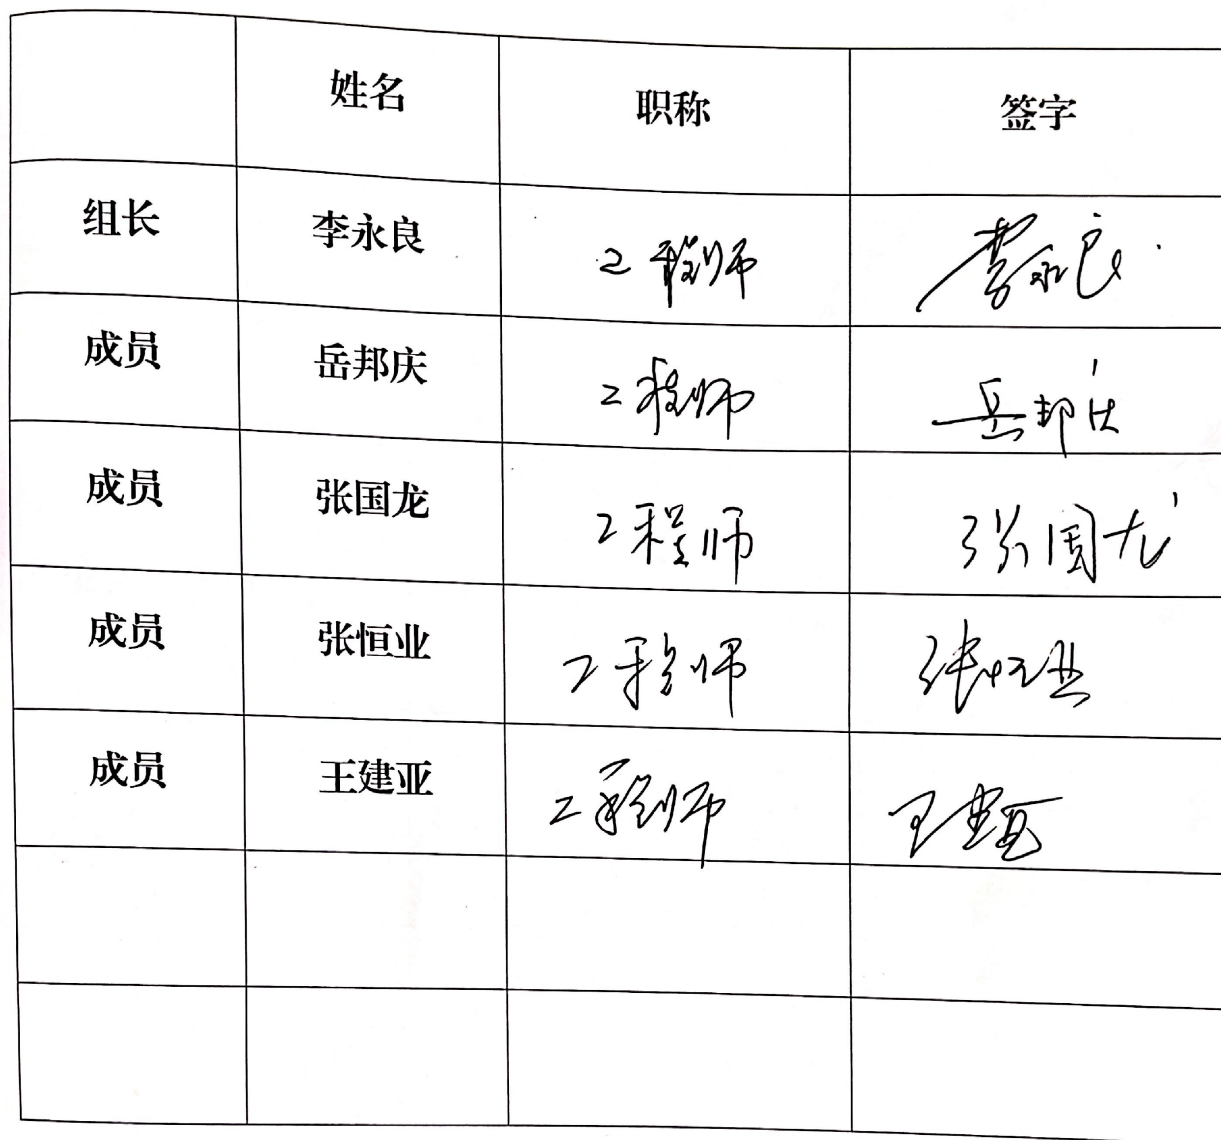 姓名 职称 签字
组长 李永良 工程师 李永良
成员 岳邦庆 工程师 岳邦庆
成员 张国龙 工程师 张国龙
成员 张恒业 工程师 张恒业
成员 王建亚 工程师 王建亚